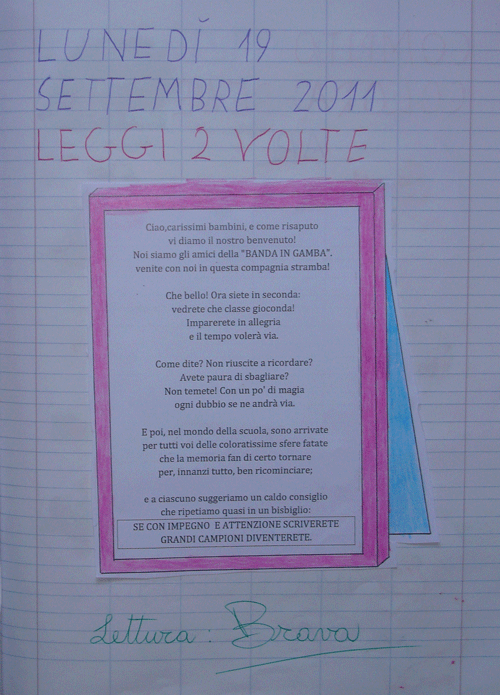 LUNEDÌ 19
SETTEMBRE 2011
LEGGI 2 VOLTE
Ciao,carissimi bambini, e come risaputo
vi diamo il nostro benvenuto!
Noi siamo gli amici della "BANDA IN GAMBA".
venite con noi in questa compagnia stramba!
Che bello! Ora siete in seconda:
vedrete che classe gioconda!
Imparerete in allegria
e il tempo volerà via.
Come dite? Non riuscite a ricordare?
Avete paura di sbagliare?
Non temete! Con un po' di magia
ogni dubbio se ne andrà via.
E poi, nel mondo della scuola, sono arrivate
per tutti voi delle coloratissime sfere fatate
che la memoria fan di certo tornare
per, innanzi tutto, ben ricominciare;
e a ciascuno suggeriamo un caldo consiglio
che ripetiamo quasi in un bisbiglio:
SE CON IMPEGNO E ATTENZIONE SCRIVERETE
GRANDI CAMPIONI DIVENTERETE.
Lettura: Brava